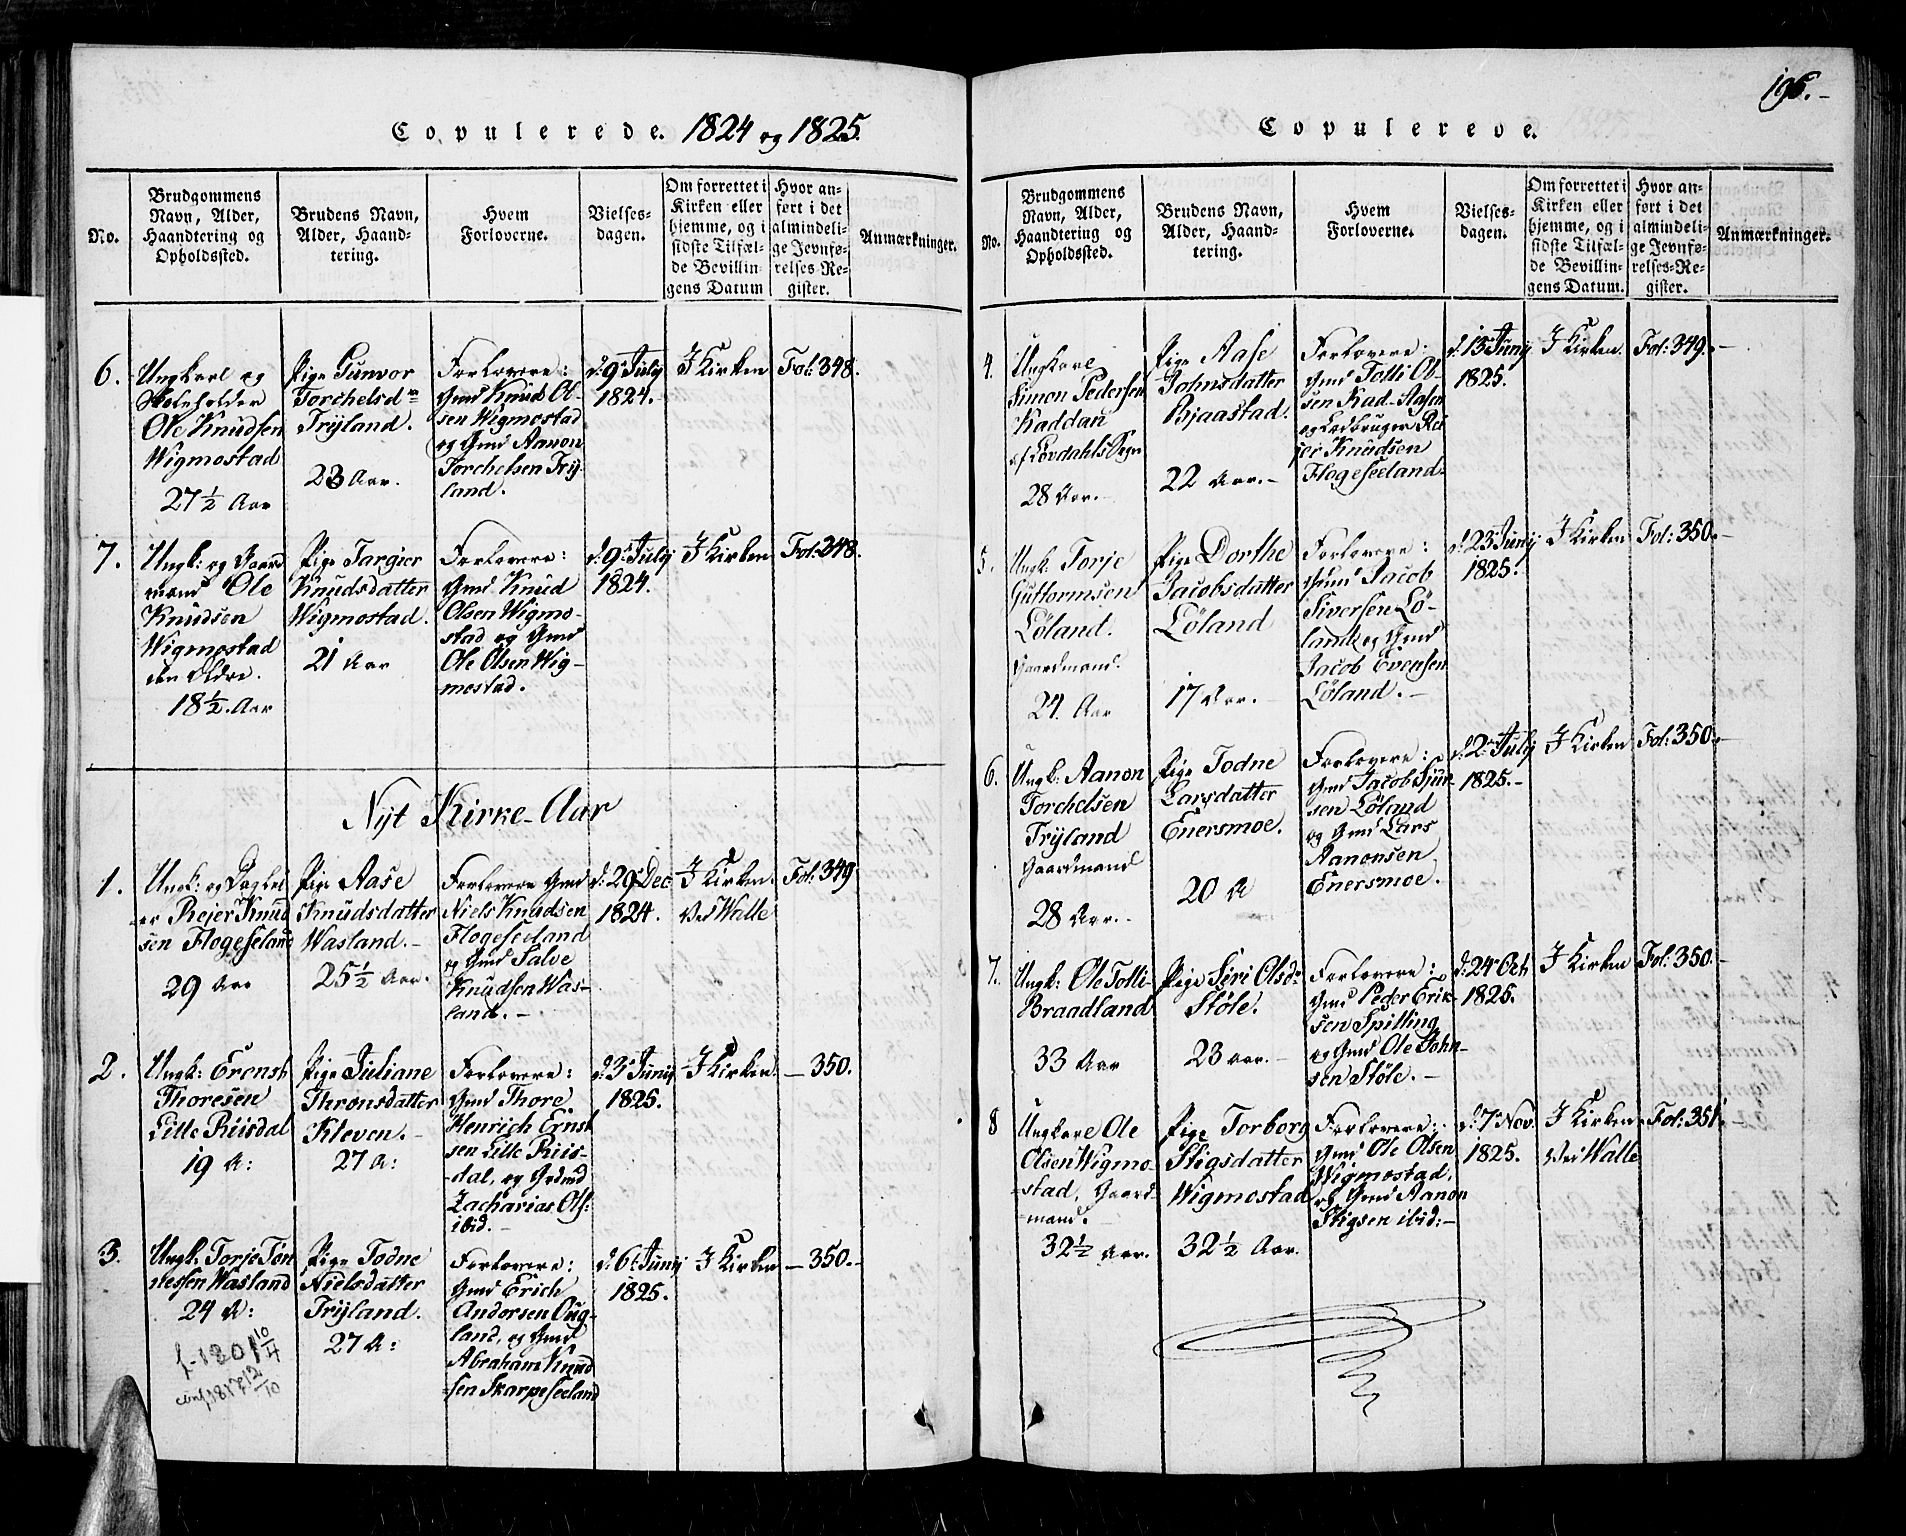 Copulerede. 1824 og 1825.
No.
Brudgommens
Navn, Alder,
Haandtering og
Opholdssted.
Brudens Navn,
Alder, Haand-
tering.
Hvem
Forloverne.
Vielses-
dagen.
Om forrettet i
Kirken eller
hjemme, og i
sidste Tilfæl-
de Bevillin-
gens Datum
Hvor an-
ført i det
almindeli-
ge Jevnfø-
relses-Re-
gister.
Anmærkninger.
6.
Ungkarl og
Skoleholder
Ole Knudsen
Wigmostad
27 ½ Aar
Pige Gunvor
Torchelsdr
Trÿland.
23 Aar.
Forlovere:
Gmd Knud Ol-
sen Wigmostad
og Gmd Aanon
Torchelsen Trÿ-
land.
d. 9 Julÿ
1824.
I Kirken
Fol: 348.
7.
Ungk: og Gaard
mand Ole
Knudsen
Wigmostad
den Eldre.
18 ½. Aar
Pige Targier
Knudsdatter
Wigmostad.
21 Aar
Forlovere:
Gmd Knud
Olsen Wigmo-
stad og Gmd
Ole Olsen Wig-
mostad.
d. 9 Julÿ
1824.
I Kirken
Fol: 348.
Nÿt Kirke-Aar
1.
Ungk: og
Rejer Knud
sen Flogeseland
29 Aar
Pige Aase
Knudsdatter
Wasland.-
25 ½ Aar.
Forlovere Gmd
Niels Knudsen
Flogeseeland
og Gmd Salve
Knudsen Was-
land.-
d. 29 Dec.
1824.
I Kirken.
Ved Walle
Fol: 349
2.
Ungk: Ernst
Thoresen
Lille Riisdal
19 A:
Pige Juliane
Thronsdatter
Kleven.-
27 A:
Forlovere:
Gmd Thore
Henrich Ernst
sen Lille Riis-
dal, og Gdmd
Zacharias Ols:
ibid.-
d. 3 Junÿ
1825.
I Kirken.
- 350.
3.
Ungk: Torje Tøn
nessen Wasland
24 A:
Pige Todne
Nielsdatter
Trÿland.
27 A:
Forlovere:
Gmd Erich
Andersen Oug-
land, og Gmd
Abraham Knud
sen Skarpeseeland
d. 6 Junÿ
1825.
I Kirken
- 350.-
f. 1801 10/4
conf. 1817 12/10
196.-
Copulerede.
No.
Brudgommens
Navn, Alder,
Haandtering og
Opholdssted.
Brudens Navn,
Alder, Haand-
tering.
Hvem
Forloverne.
Vielses-
dagen.
Om forrettet i
Kirken eller
hjemme, og i
sidste Tilfæl-
de Bevillin-
gens Datum.
Hvor an-
ført i det
almindeli-
ge Jevnfø-
relses-Re-
gister.
Anmærkninger.
4.
Ungkarl
Simon Pedersen
Kaddan
af Løvdahls Sogn
28 Aar.-
Pige Aase
Johnsdatter
Bjaastad.
22 Aar.-
Forlovere:
Gmd Tolli Ol-
sen
og Ledbruger Rei
jer Knudsen
Flogeseeland.
d. 13 Junÿ
1825.
I Kirken.
Fol: 349.-
5.
Ungk: Torje
Guttormsen
Löland.
Gaardmand.
24. Aar
Pige Dorthe
Jacobsdatter
Löland
17 Aar.-
Forlovere:
Gmd Jacob
Siversen Lö-
land og Gmd
Jacob Evensen
Löland.-
d. 23 Junÿ
1825.
I Kirken
Fol: 350.-
6.
Ungk: Aanon
Torchelsen
Trÿland
Gaardmand
28 Aar.-
Pige Todne
Larsdatter
Enersmoe.
20 A
Forlovere:
Gmd Jacob Sjur-
sen Löland
og Gmd Lars
Aanonsen
Enersmoe.
d. 2 Julÿ
1825.-
I Kirken
Fol: 350.-
7.
Ungk: Ole Tolli-
Braadland
33 Aar
Pige Siri Olsdr
Stöle.
23 Aar.-
Forlovere:
Gmd Peder Erik-
sen Spilling
og Gmd Ole John-
sen Stöle.-
d. 24 Oct.
1825.
I Kirken
Fol: 350.-
8
Ungkarl Ole
Olsen Wigmo-
stad, Gaard-
mand.-
32 ½ Aar.
Pige Torborg
Stigsdatter
Wigmostad
32 ½ Aar.
Forlovere:-
Gmd Ole Olsen
Wigmostad,
og Gmd Aanon
Stigsen ibid:-
d. 7 Nov.
1825.
I Kirken
Ved Walle
Fol: 351.-